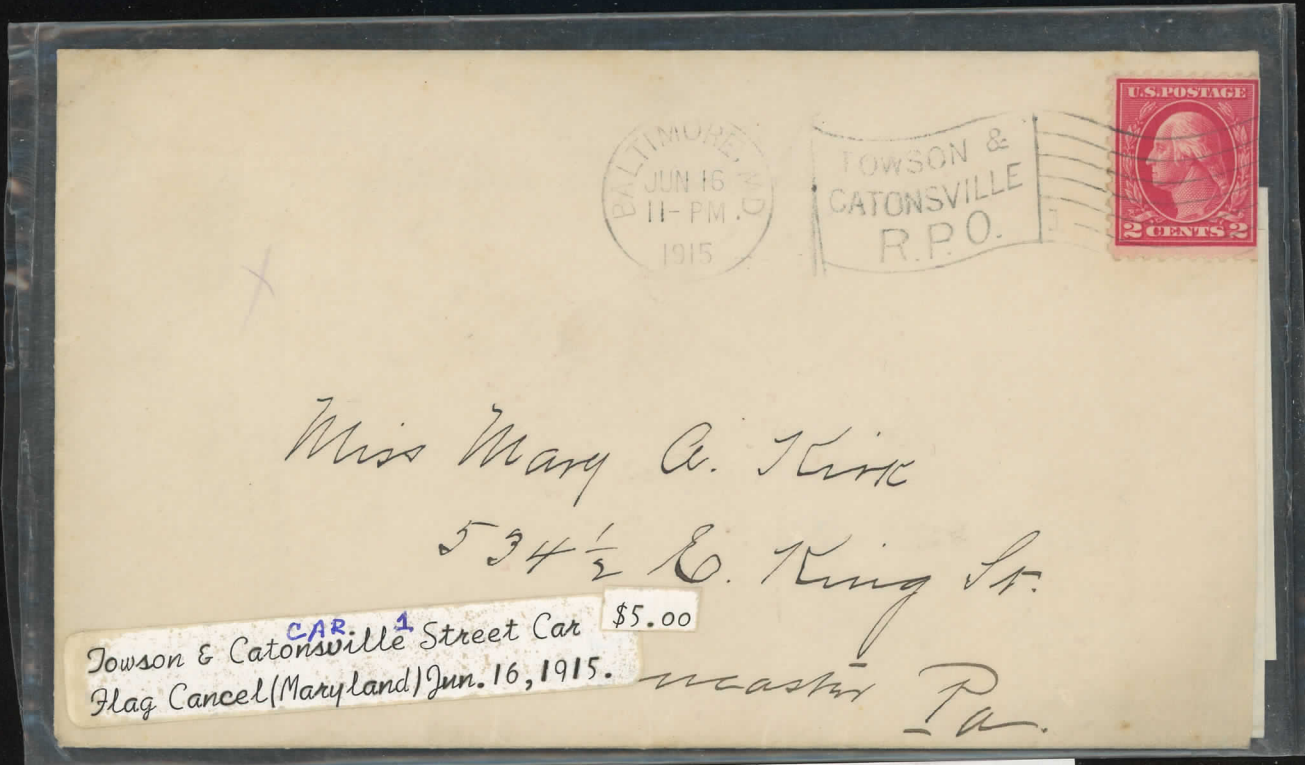 BALTIMORE, MD
JUN 16
11-PM.
1915
TOWSON &
CATONSVILLE
R.P.O.
U.S.POSTAGE
2 CENTS 2
Miss Mary A. Kirk
534 1/2 E. King St.
ncaster Pa.
$5.00
CAR. 1
Towson & Catonsville Street Car
Flag Cancel (Maryland) Jun. 16, 1915.